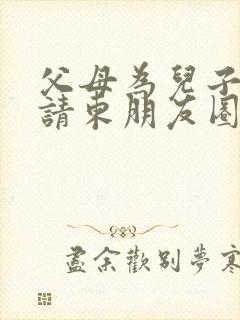 父母為兒子
請柬朋友圈
盡余歡別夢寒